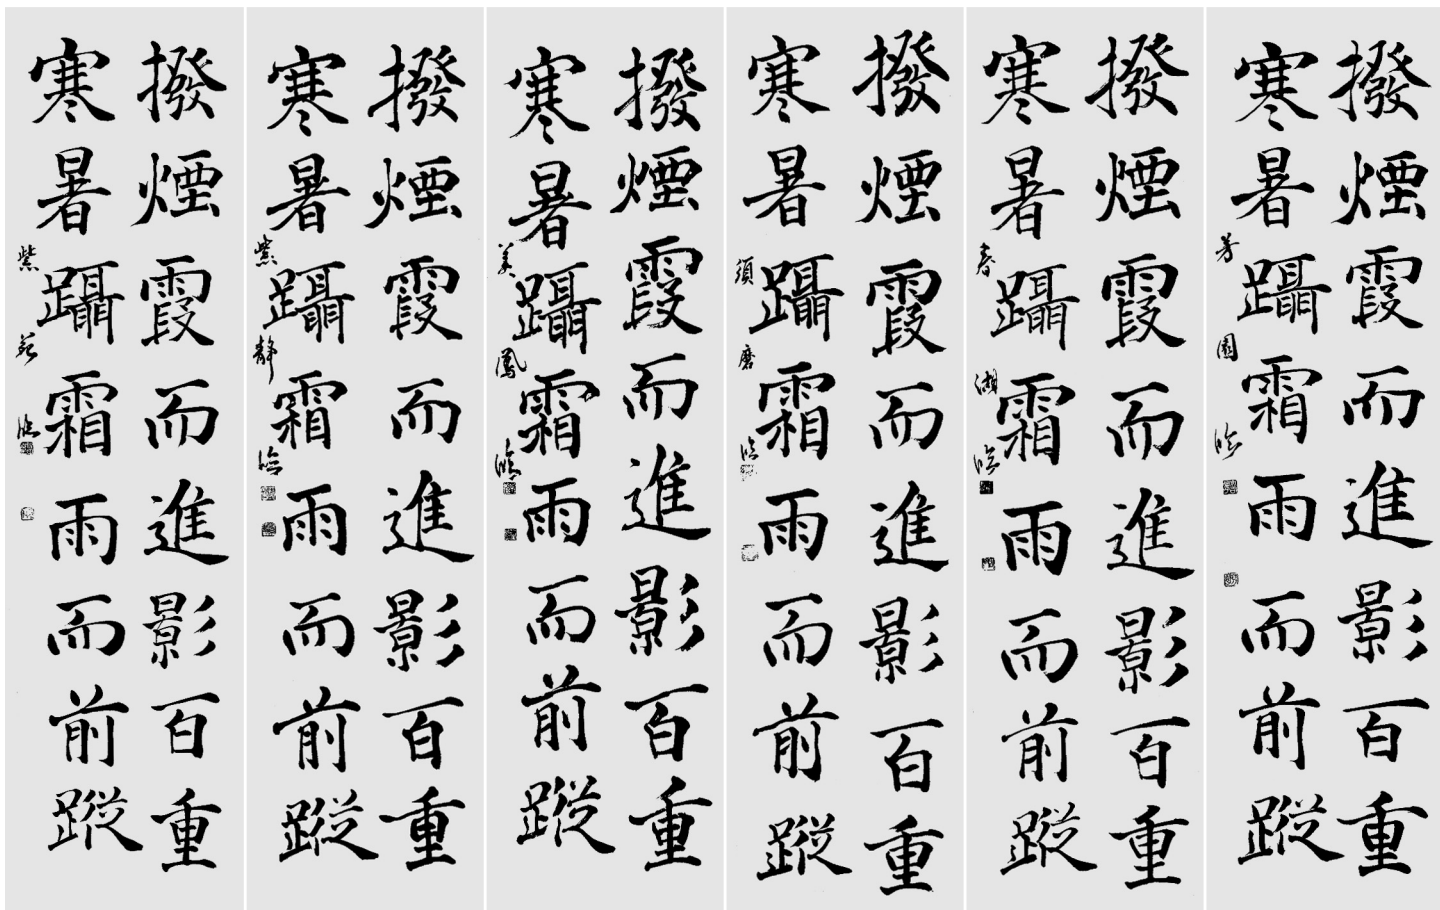 撥煙霞而進影百重
寒暑躡霜雨而前蹤
芳園臨
撥煙霞而進影百重
寒暑躡霜雨而前蹤
春湖臨
撥煙霞而進影百重
寒暑躡霜雨而前蹤
須磨臨
撥煙霞而進影百重
寒暑躡霜雨而前蹤
美鳳臨
撥煙霞而進影百重
寒暑躡霜雨而前蹤
紫静臨
撥煙霞而進影百重
寒暑躡霜雨而前蹤
紫 臨